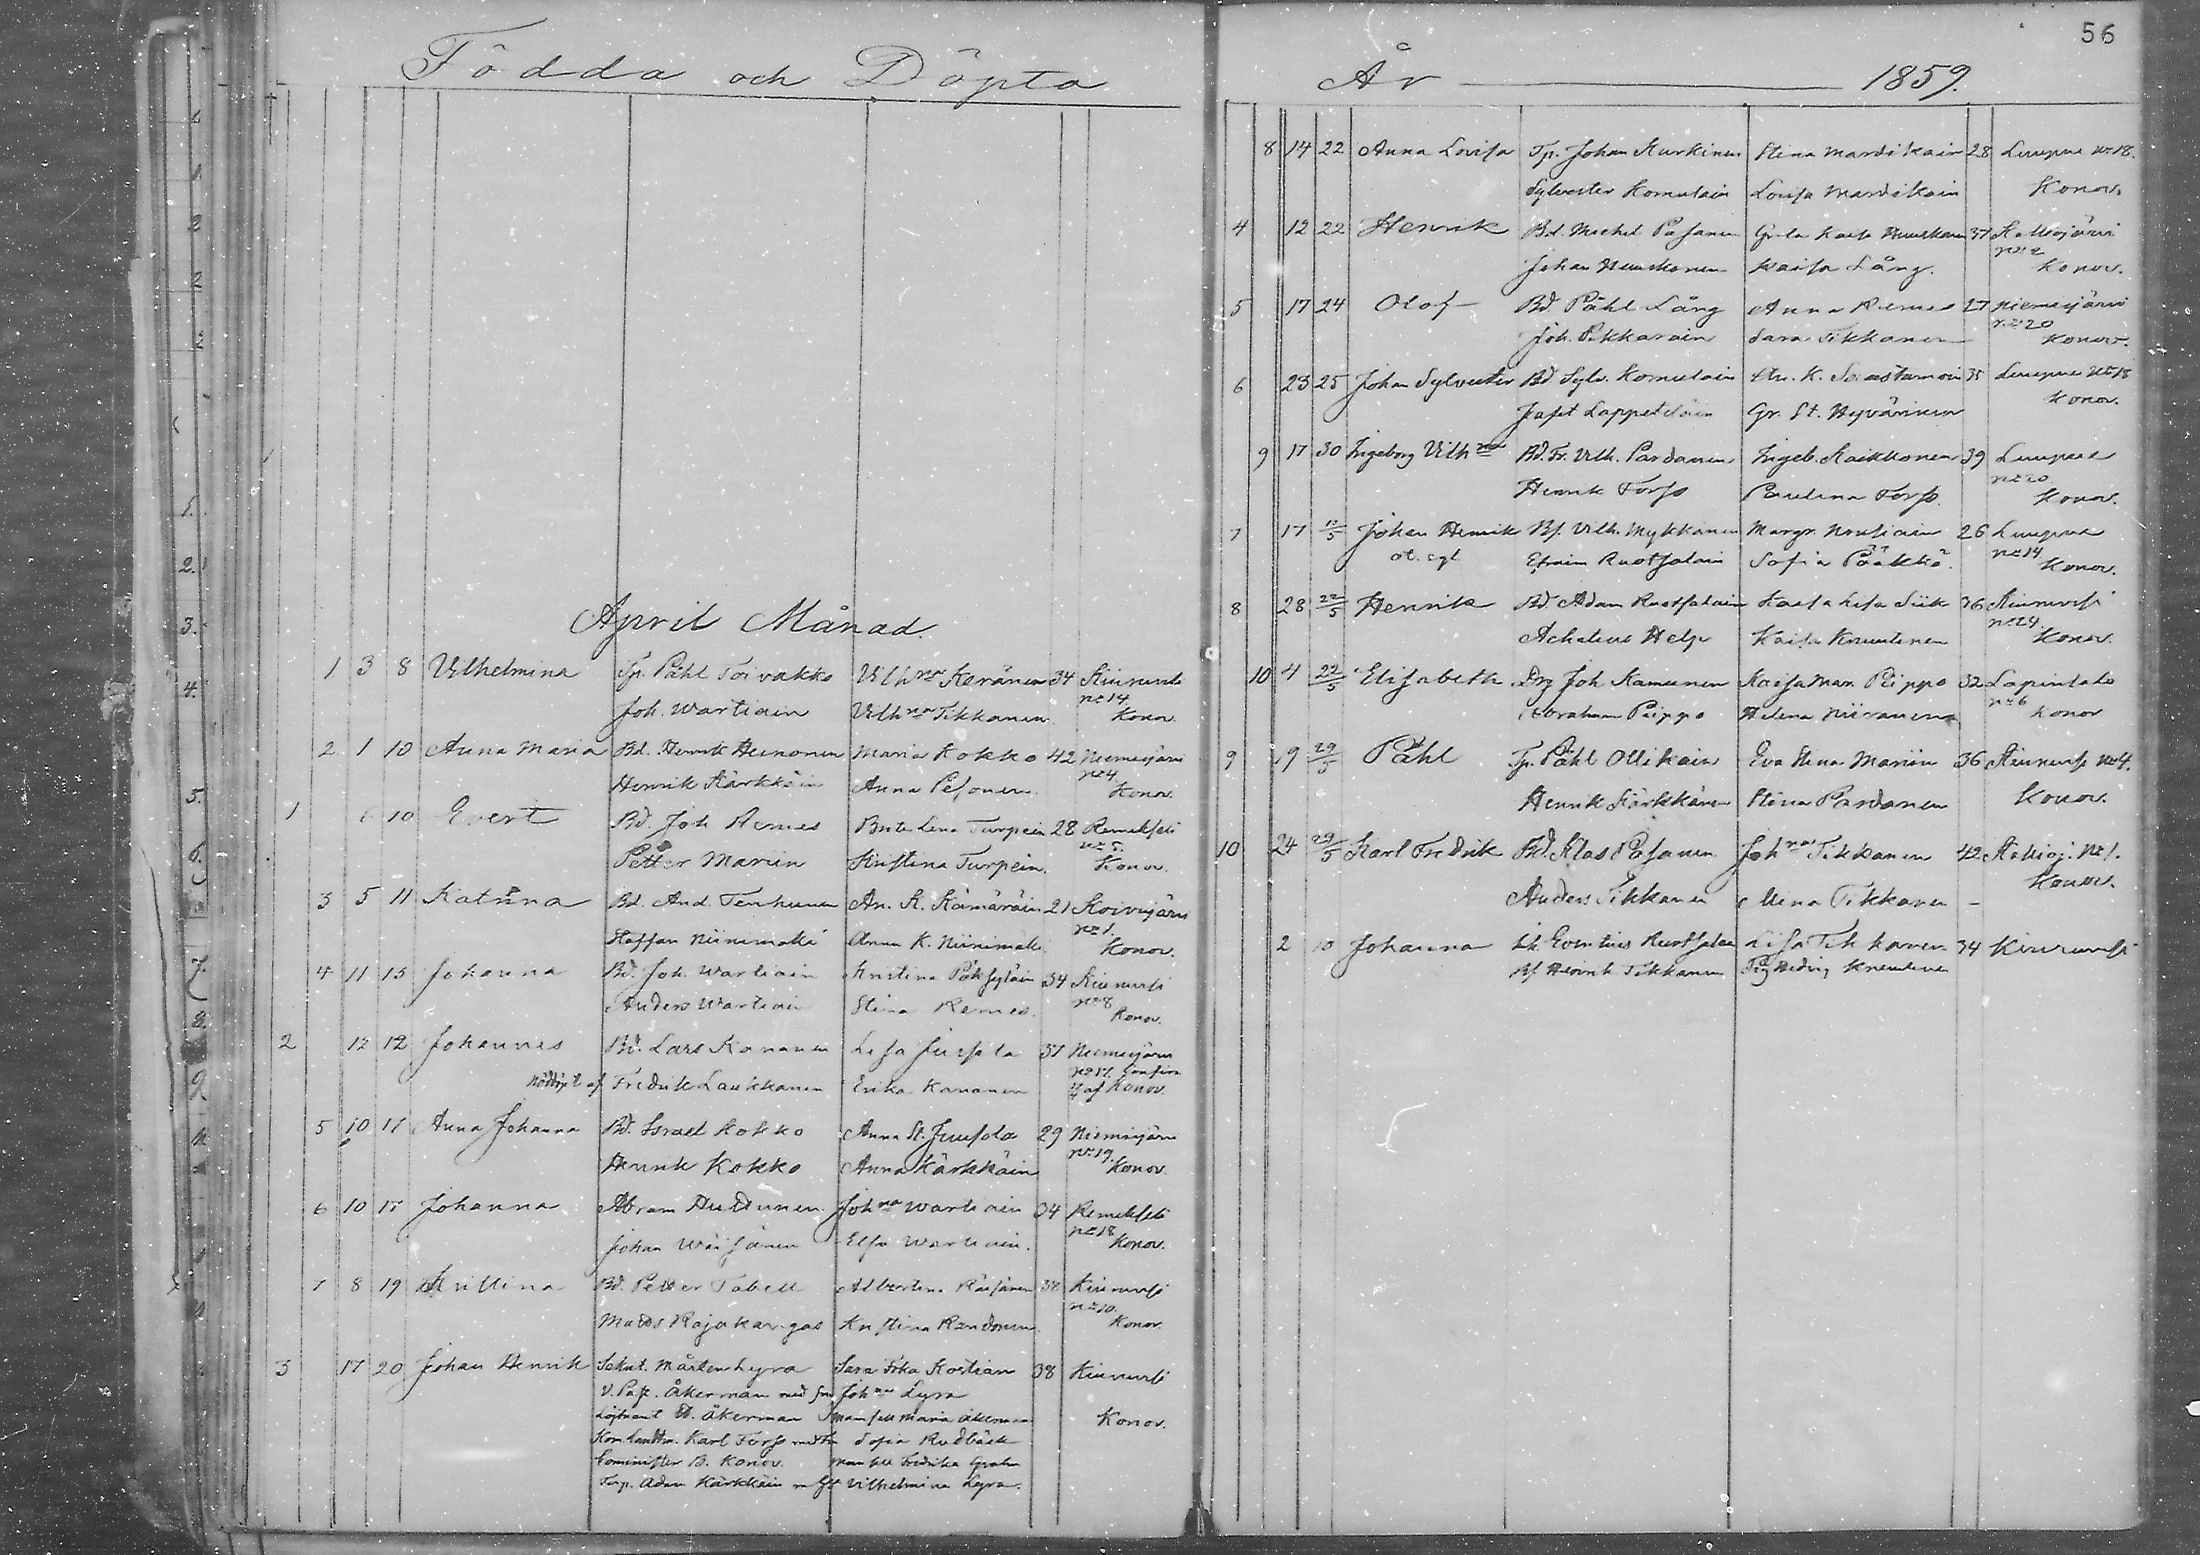 Födda och Döpta
April Månad
1 3 8 Vilhelmina Tp. Påhl Toivakko Vilhna Keränen 34 Kiuruvesi
Joh. Wartiain Vilhna Tikkanen no 14 Konov.
2 1 10 Anna Maria Bd. Henrik Heinonen Maria Kokko 42 Niemisjärvi
Henrik Kärkkäin Anna Pesonen no 4 Konov.
1 6 10 Evert Bd. Joh Remes Brita Lena Turpein 28 Remeksela
Petter Mariin Kristina Turpein. no 5. Konov.
3 5 11 Katrina Bd. And. Tenhunen An. K. Kämäräin 21 Koivujärvi
Staffan Niinimäki Anna K. Niinimäki no 1. Konov.
4 11 15 Johanna Bd. Joh. Wartiain Kristina 34 Kiuruvesi
Anders Wartiain Stina Remes. no 8 Konov.
2 12 12 Johannes Bd. Lars Kananen Lisa Jusola 37 Niemisjärvi
nöddöpt af Fredrik Laukkanen Erika Kananen no 17. af Konov.
5 10 17 Anna Johanna Bd. Israel Kokko Anna St. Juusola 29 Niemisjärvi
Henrik Kokko Anna Kärkkäin no 19. Konov.
6 10 17 Johanna Abram Huttunen Johna Wartiain 34
Johan Wäisänen Elsa Wartiain. no 18 Konov.
7 8 19 Kristina Bd. Petter Tabell Albertina Räisänen 38 Kiuruvesi
Matts Rajakangas Kristina no 10. Konov.
3 17 20 Johan Henrik Sekut. Mårten Lyra Sara Fika 38 Kiuruvesi
V. Past. Åkerman med fru Johna Lyra
Löjtnant Åkerman Mamsell Maria Åkerman Konov.
Karl Forss med fru Sofia Rudbäck
Comminister B. Konov. Mamsell Fredrika
Torp. Adam Kärkkäin m Vilhelmina Lyra.
År 1859.
56
8 14 22 Anna Lovisa Tp. Johan Kurkinen Stina Mardikain 28 Luupue No 18.
Sylvester Komulain Lovisa Mardikain Konov.
4 12 22 Henrik Bd. Michel Pasanen Greta Kaisa 37
Johan Kaisa Lång. no 2 Konov.
5 17 24 Olof Bd. Påhl Lång Anna Remes 27 Niemisjärvi
Joh. Pikkarain Sara Tikkanen no 20 Konov.
6 23 25 Johan Sylvester Bd Sylv. Komulain An. K. 35 Luupue No 18
Lappetelain Gr. St. Hyvärinen Konov.
9 17 30 Ingeborg Vilhna Bd. Fr. Vilh. Pardanen Ingeb. Kaikkonen 39 Luupue
Henrik Forss Paulina Forss. no 20 Konov.
7 17 Johan Henrik Bs. Vilh. Mykkänen Margr. Nousiain 26 Luupue
Efraim Ruotsalain Sofia Pääkkö. no 14 Konov.
8 28 22/5 Henrik Bd. Adam Ruotsalain Kaisa Lisa Siik 36 Kiuruvesi
Achatius Help Kaisa Knuutinen no 24. Konov.
10 4 22/5 Elisabeth Drg Joh Kamunen Kaisa Mar. Piippo 32 Lapinsalo
Abraham Piippo Helena Niiranen no 6 Konov
9 9 29/5 Påhl Tp. Påhl Ollikain Eva Stina Mariin 36 Kiuruvesi No 4.
Henrik Kärkkänen Stina Pardanen Konov.
10 24 29/5 Karl Fredrik Bd. Klas Pasanen Johna Tikkanen 42 No 1.
Anders Tikkanen Mina Tikkanen - Konov.
2 10 Johanna Eventius Ruotsalain Lisa Tikkanen 34 Kiuruvesi
Bs Henrik Tikkanen Pig Hedvig Knuutinen